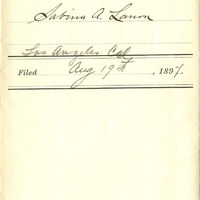 Sabina A. Lanon
Los Angeles Cal
Filed Aug 19th, 1897.